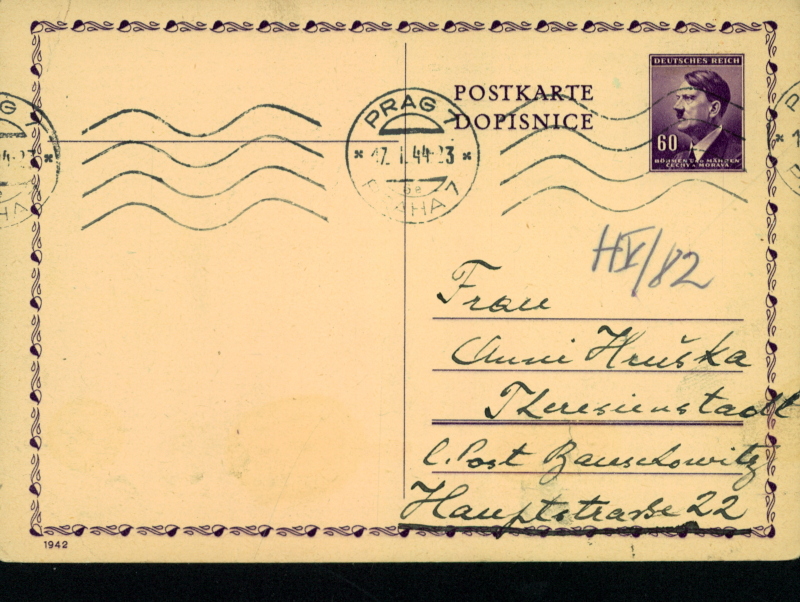 POSTKARTE
DOPISNICE
DEUTSCHES REICH
60
BÖHMEN UND MÄHREN
ČECHY A MORAVA
PRAG 7
17. I. 44-23
PRAHA 7
HV/82
Frau
Anni Hruška
Theresienstadt
Post Bauschowitz
Hauptstraße 22
1942